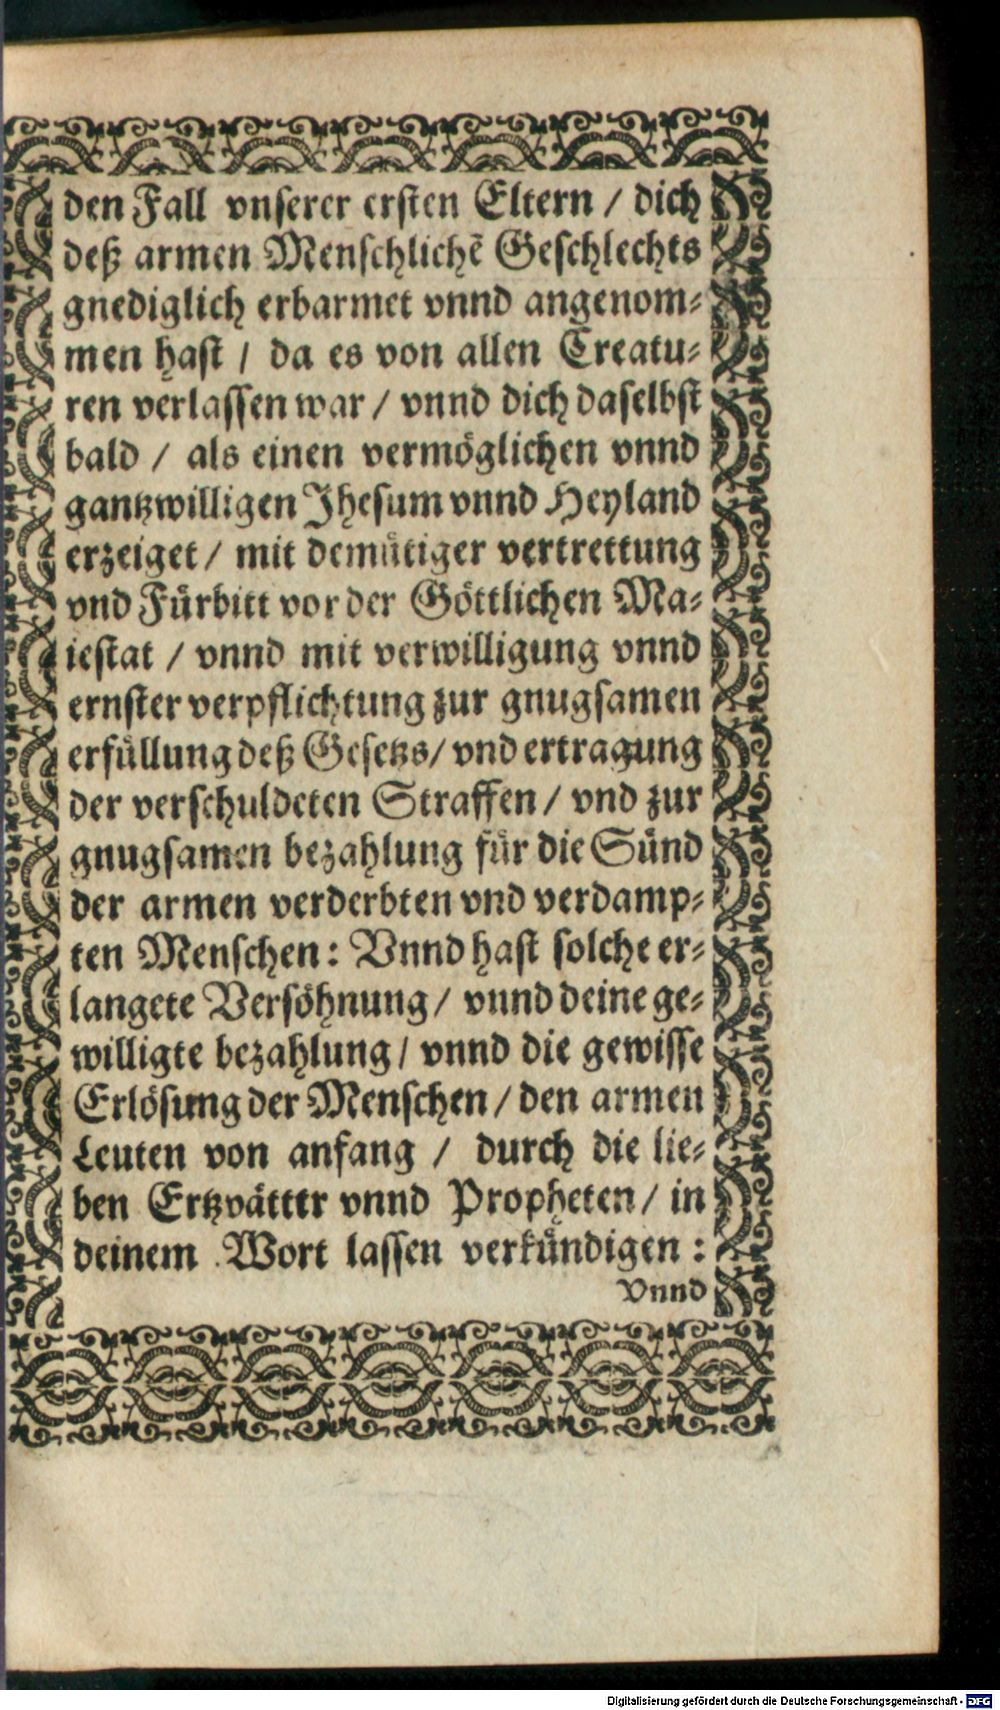 den Fall vnserer ersten Eltern / dich
deß armen Menschlichẽ Geschlechts
gnediglich erbarmet vnnd angenom⸗
men hast / da es von allen Creatu⸗
ren verlassen war / vnnd dich daselbst
bald / als einen vermöglichen vnnd
gantzwilligen Jhesum vnnd Heyland
erzeiget / mit demütiger vertrettung
vnd Fürbitt vor der Göttlichen Ma⸗
iestat / vnnd mit verwilligung vnnd
ernster verpflichtung zur gnugsamen
erfüllung deß Gesetzs / vnd ertragung
der verschuldeten Straffen / vnd zur
gnugsamen bezahlung für die Sünd
der armen verderbten vnd verdamp⸗
ten Menschen: Vnnd hast solche er⸗
langete Versöhnung / vnnd deine ge⸗
willigte bezahlung / vnnd die gewisse
Erlösung der Menschen / den armen
Leuten von anfang / durch die lie⸗
ben Ertzvätttr vnnd Propheten / in
deinem Wort lassen verkündigen :
Vnnd
Digitalisierung gefördert durch die Deutsche Forschungsgemeinschaft - DFG